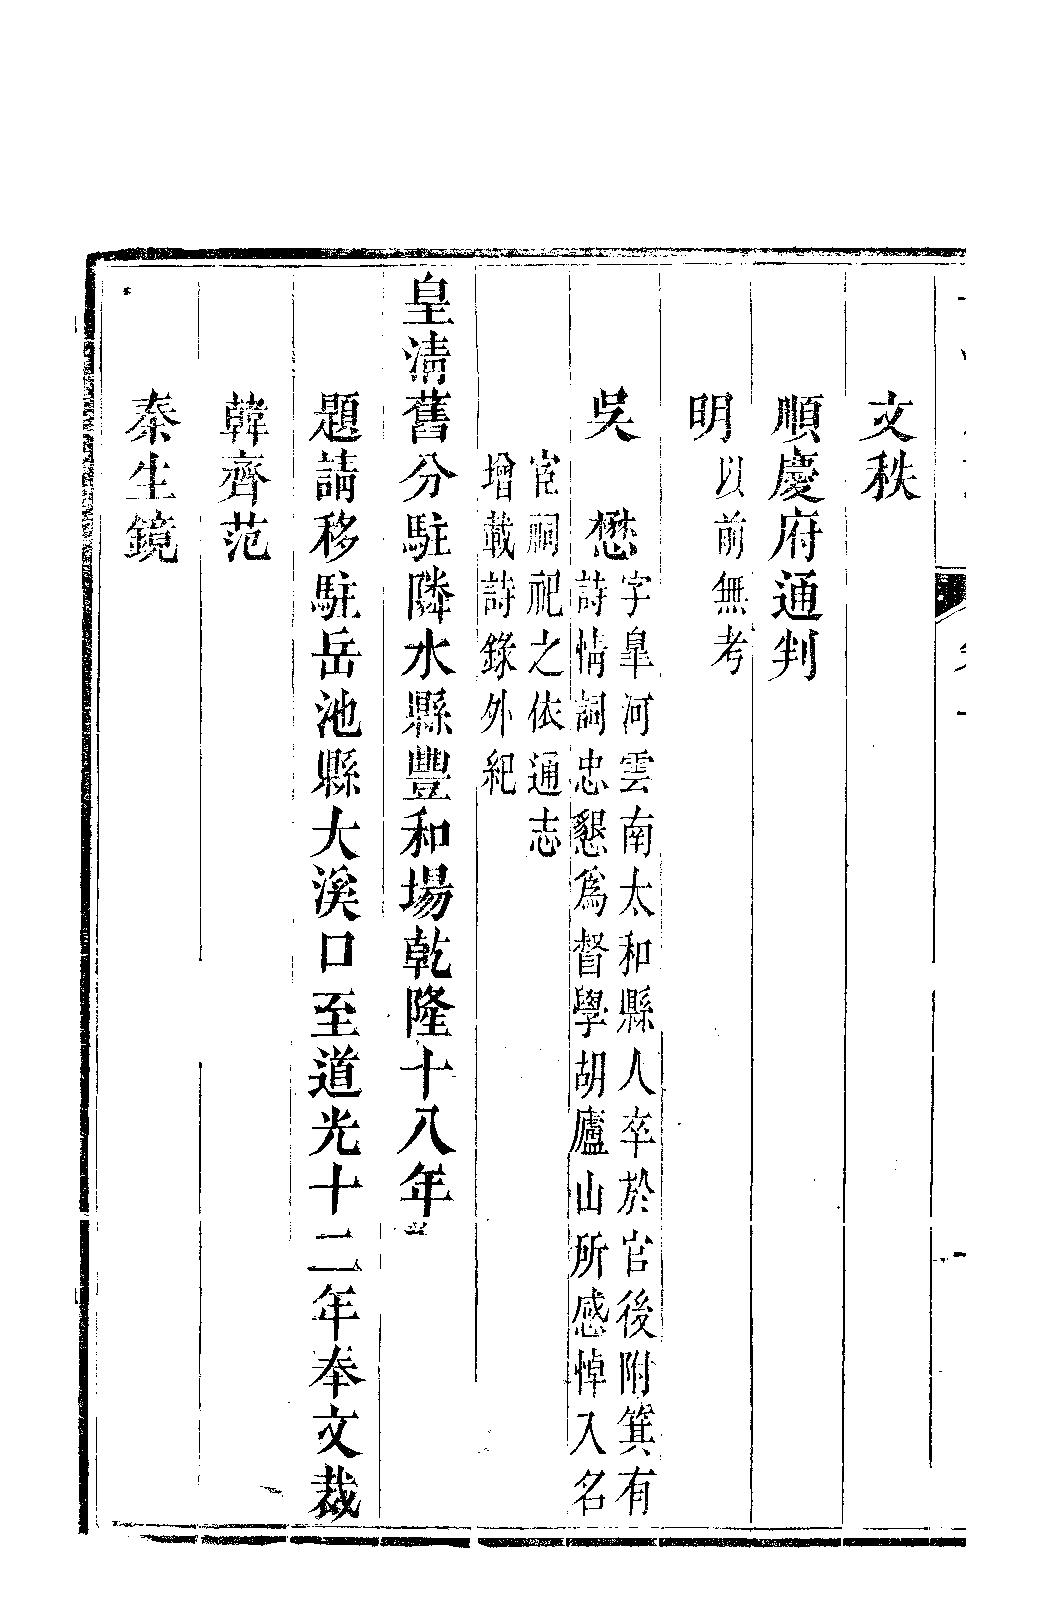 文秩
順慶府通判
明以前無考
吳懋字臯河雲南太和縣人卒於官後附箕有
詩情詞忠懇爲督學胡廬山所感悼入名
宦祠祀之依通志
增載詩錄外紀
皇清舊分駐隣水縣豐和場乾隆十八年
題請移駐岳池縣大溪口至道光十二年奉文裁
韓齊范
秦生鏡